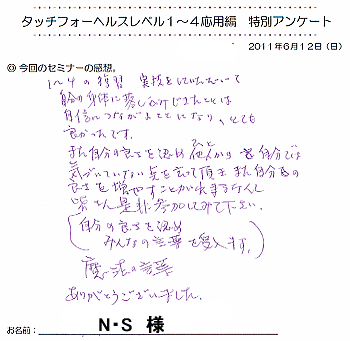 タッチフォーヘルスレベル1～4応用編 特別アンケート
2011年6月12日(日)
◎今回のセミナーの感想。
1～4の復習 実技をしていただいて
自分の身体に落し込みができたことは
自信につながることになり、とても
良かったです。
また自分の良さを認め 他人から 自分では
気づいていない点を言って頂き また自分の
良さを増やすことができますなんて
皆さん是非参加してみて下さい。
自分の良さを認め
みんなの言葉を受入ます。
魔法の言葉
ありがとうございました。
お名前: N・S 様